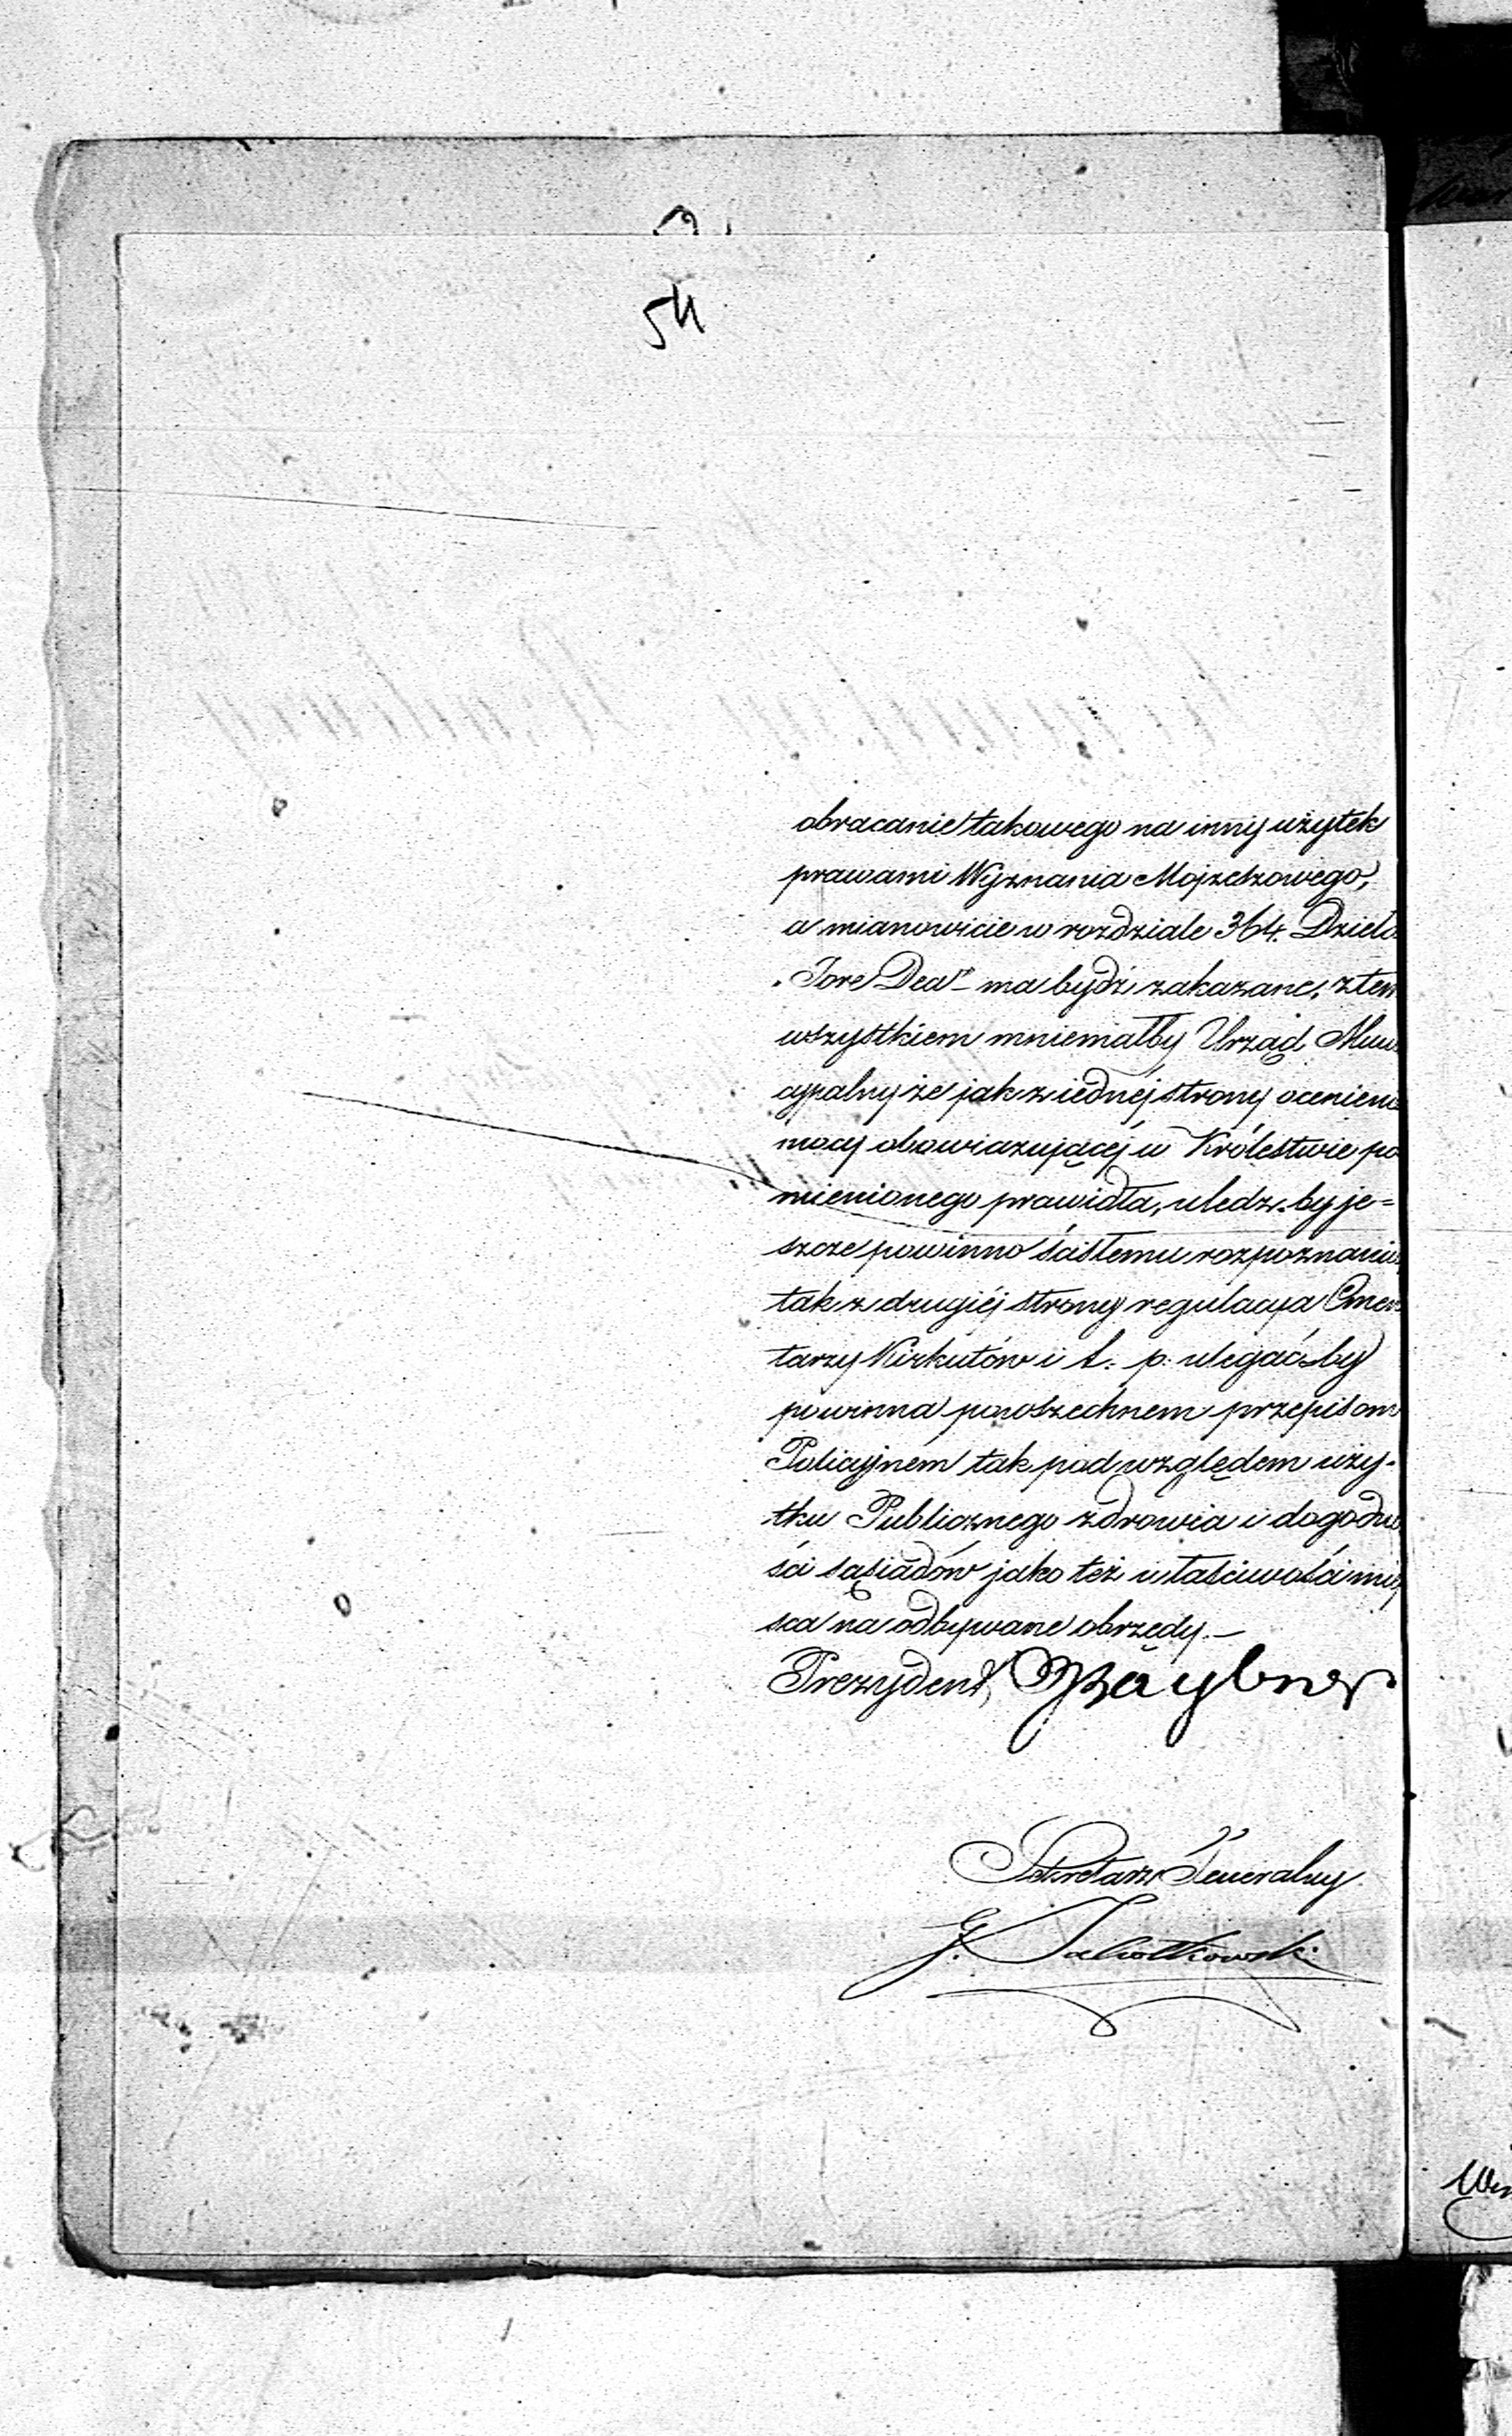 54
obracanie takowego na inny użytek
prawami Wyznania Mojżeszowego,
a mianowicie w rozdziale 364. Dzieła
"Jore Dea" – ma bydź zakazane, z tem
wszystkiem mniemałby Urząd Muni
cypalny że jak z iednéj strony ocenienie
mocy obowiązującéj w Królestwie po
mienionego prawidła, uledz-by je=
szcze powinno ścisłemu rozpoznaniu,
tak z drugiéj strony regulacya Cmen
tarzy Kirkutów i t. p. ulegać-by
powinna powszechnem przepisom
Policyjnem tak pod względem uży-
tku Publicznego zdrowia i dogodno
ści sąsiadów jako też właściwości miey
sca na odbywane obrzędy. –
Prezydent,
Sekretarz Jeneralny
G. Jabołkowski